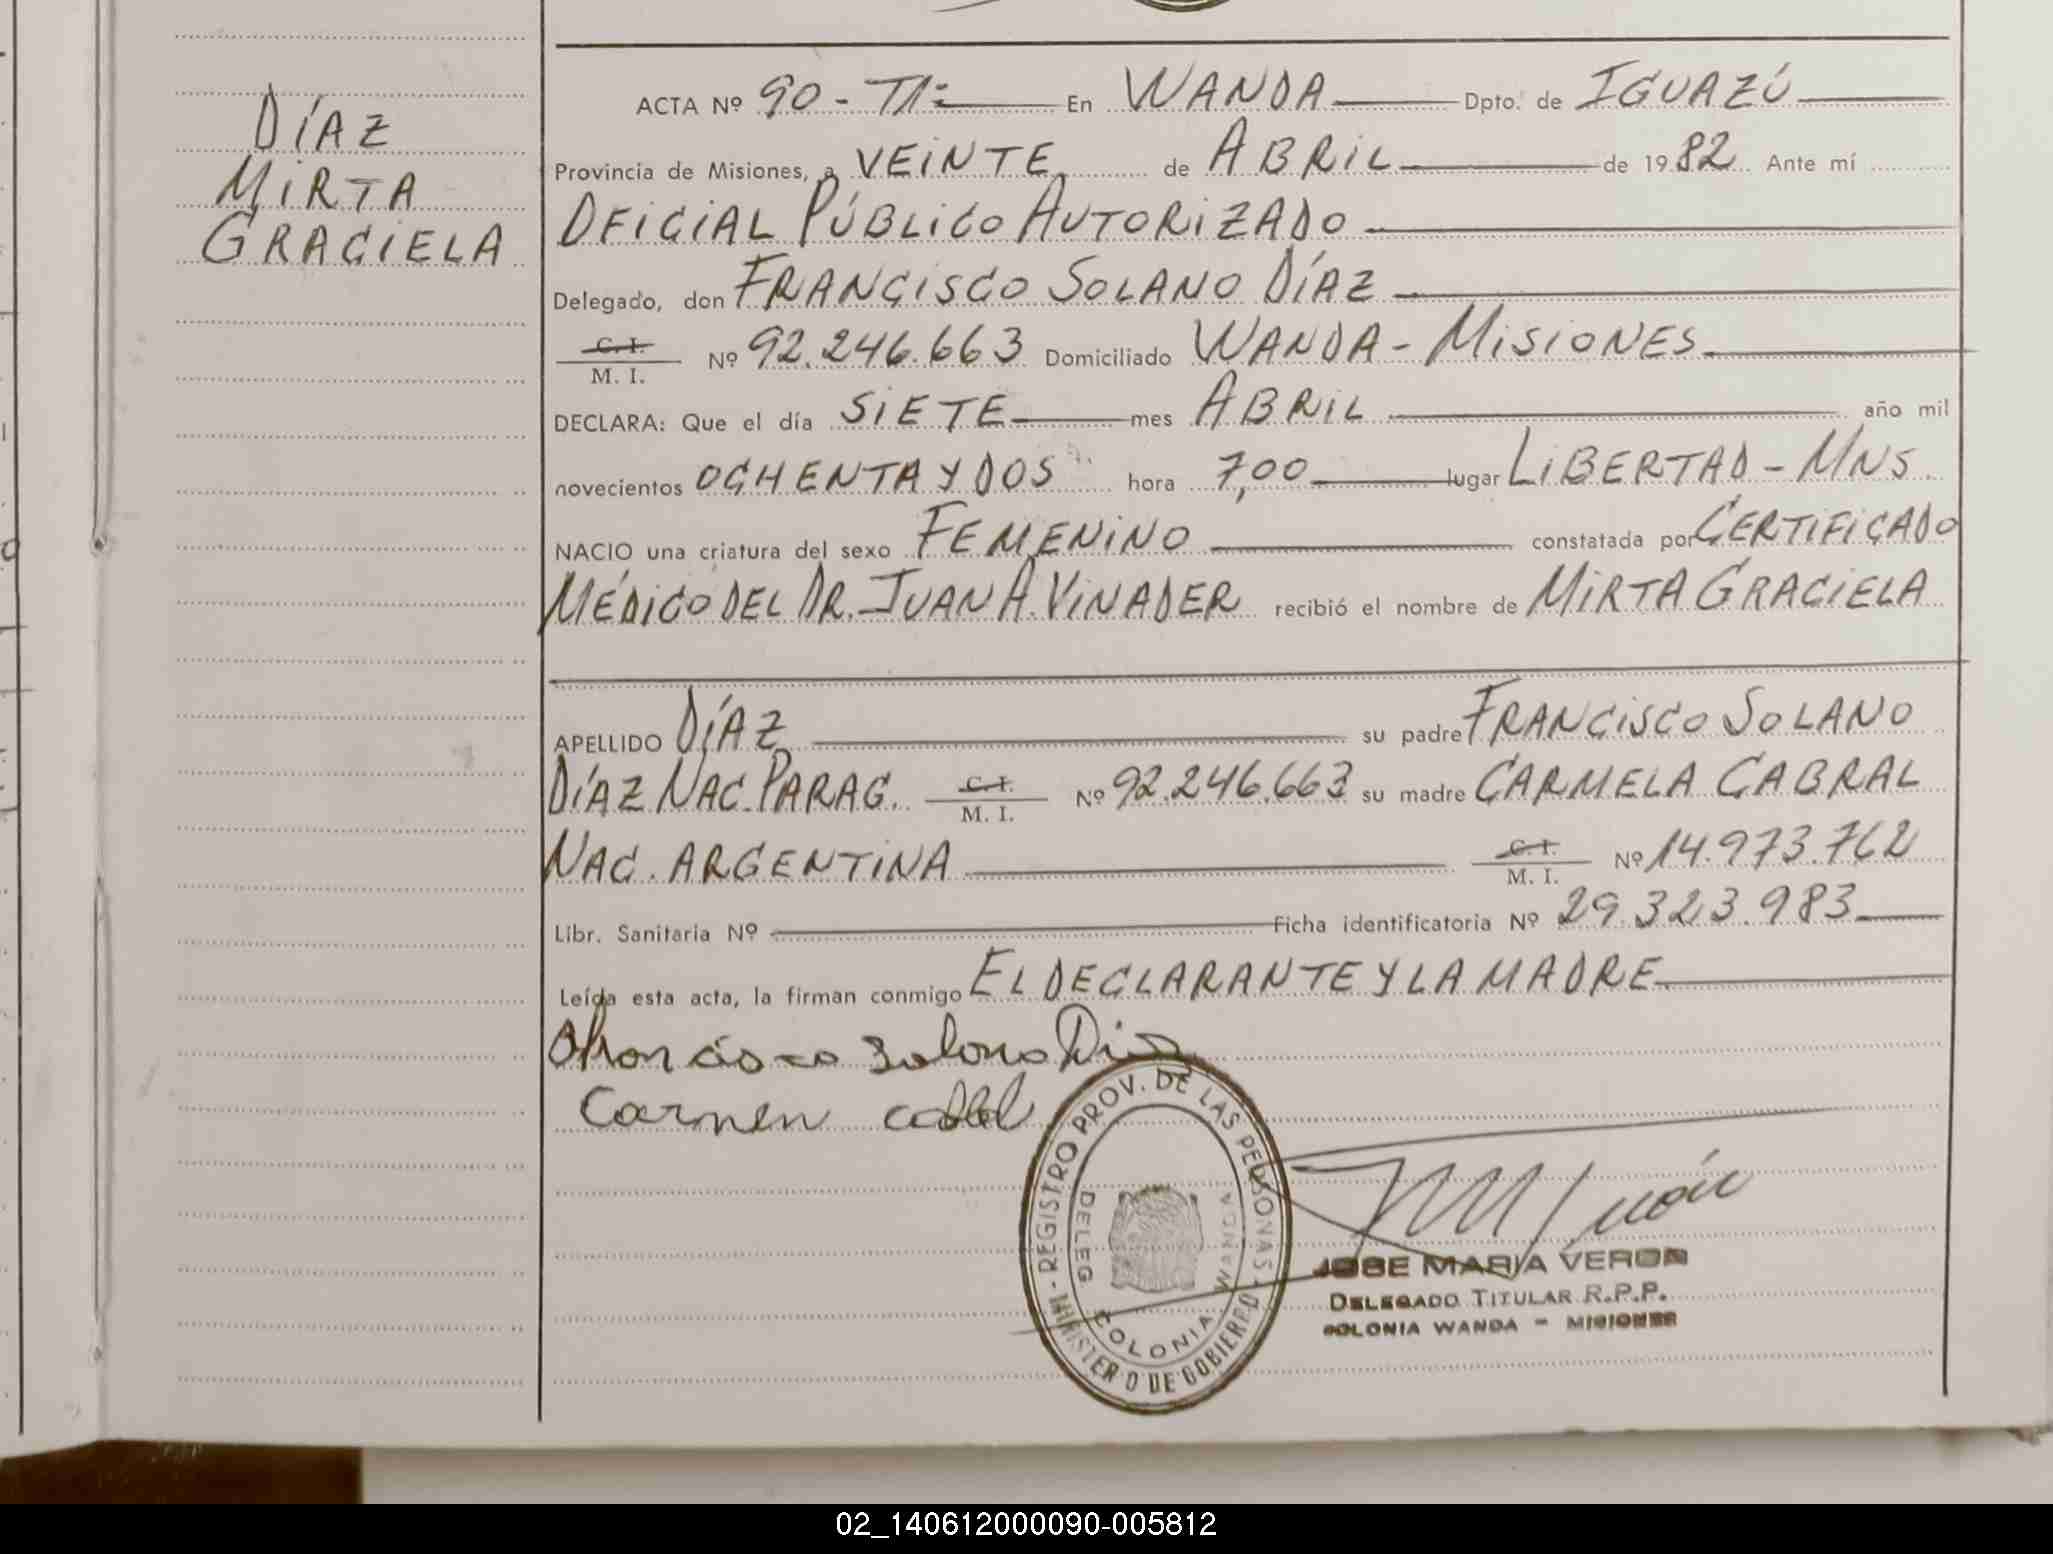 DÍAZ
MIRTA
GRACIELA
ACTA Nº 90 - T1: En WANDA Dpto. de IGUAZÚ
Provincia de Misiones, a VEINTE de ABRIL de 1982 Ante mí
OFICIAL PÚBLICO AUTORIZADO
Delegado, don FRANCISCO SOLANO DÍAZ
C. I.
M. I. Nº 92.246.663 Domiciliado WANDA - MISIONES
DECLARA: Que el día SIETE mes ABRIL año mil
novecientos OCHENTA Y DOS hora 7,00 lugar LIBERTAD - MNS
NACIO una criatura del sexo FEMENINO constatada por CERTIFICADO
MÉDICO DEL DR. JUAN A. VINADER recibió el nombre de MIRTA GRACIELA
APELLIDO DÍAZ su padre FRANCISCO SOLANO
DÍAZ NAC. PARAG. C. I. M. I. Nº 92.246.663 su madre CARMELA CABRAL
NAC. ARGENTINA C. I. M. I. Nº 14.973.762
Libr. Sanitaria Nº Ficha identificatoria Nº 29.323.983
Leída esta acta, la firman conmigo EL DECLARANTE Y LA MADRE
Solono Diaz
Carmen
REGISTRO PROV. DE LAS PERSONAS
MINISTERIO DE GOBIERNO
DELEG. COLONIA WANDA
JOSE MARIA VERON
DELEGADO TITULAR R.P.P.
COLONIA WANDA - MISIONES
02_140612000090-005812